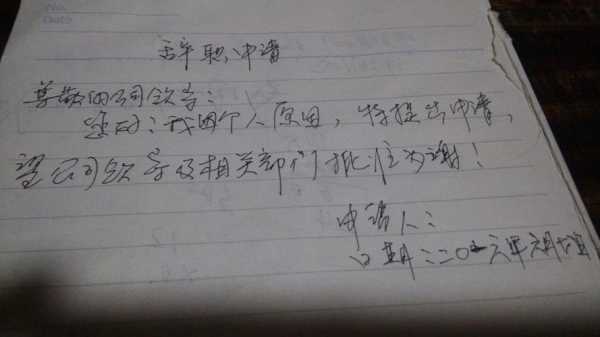 辞职申请
尊敬的公司领导：
您好：我因个人原因，特提出申请，
望公司领导及相关部门批准为谢！
申请人：
日期：二〇一六年六月